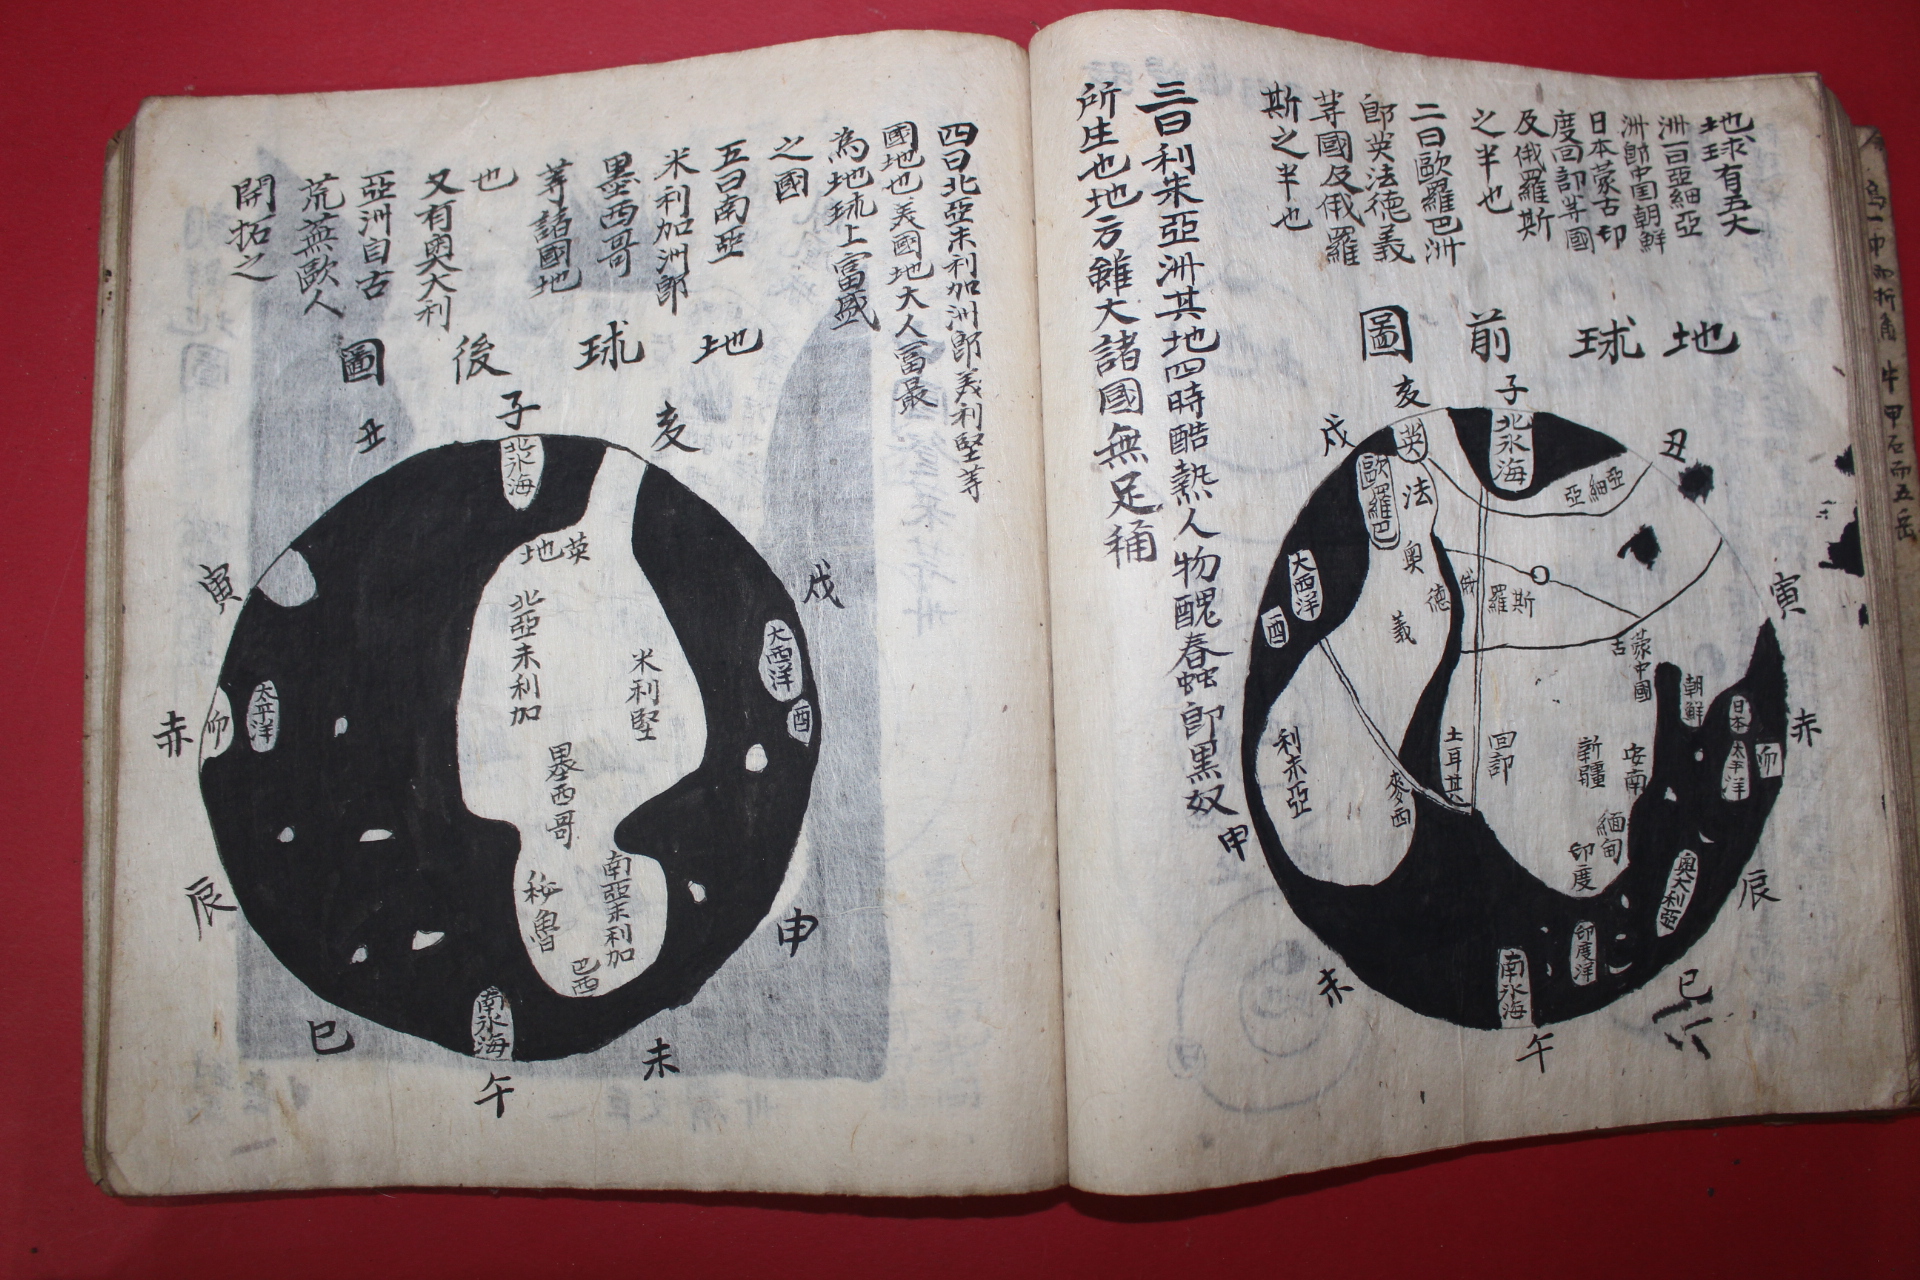 地球有五大
洲一曰亞細亞
洲卽中国朝鮮
日本蒙古印
度回部等國
及俄羅斯
之半也
二曰歐羅巴洲
郎英法德義
等國及俄羅
斯之半也
三曰利未亞洲其地四時酷熱人物醜蠢蝡卽黑奴
所生也地方雖大諸國無足稱
地球前圖
子
丑
寅
赤
卯
辰
巳
午
未
申
酉
戌
亥
北氷海
英
法
歐羅巴
亞細亞
大西洋
奧
德
義
俄羅斯
蒙古
中國
朝鮮
日本
太平洋
利未亞
麥西
土耳其
回部
新疆
安南
緬甸
印度
奧大利亞
印度洋
南氷海
四曰北亞未利加洲郎美利堅等
國地也美國地大人富最
為地球上富盛
之國
五曰南亞
米利加洲郎
墨西哥
等諸國地
也
又有奧大利
亞洲自古
荒蕪歐人
開拓之
地球後圖
子
丑
寅
赤
卯
辰
巳
午
未
申
酉
戌
亥
北氷海
英地
北亞未利加
米利堅
大西洋
太平洋
墨西哥
南亞未利加
秘魯
巴西
南氷海